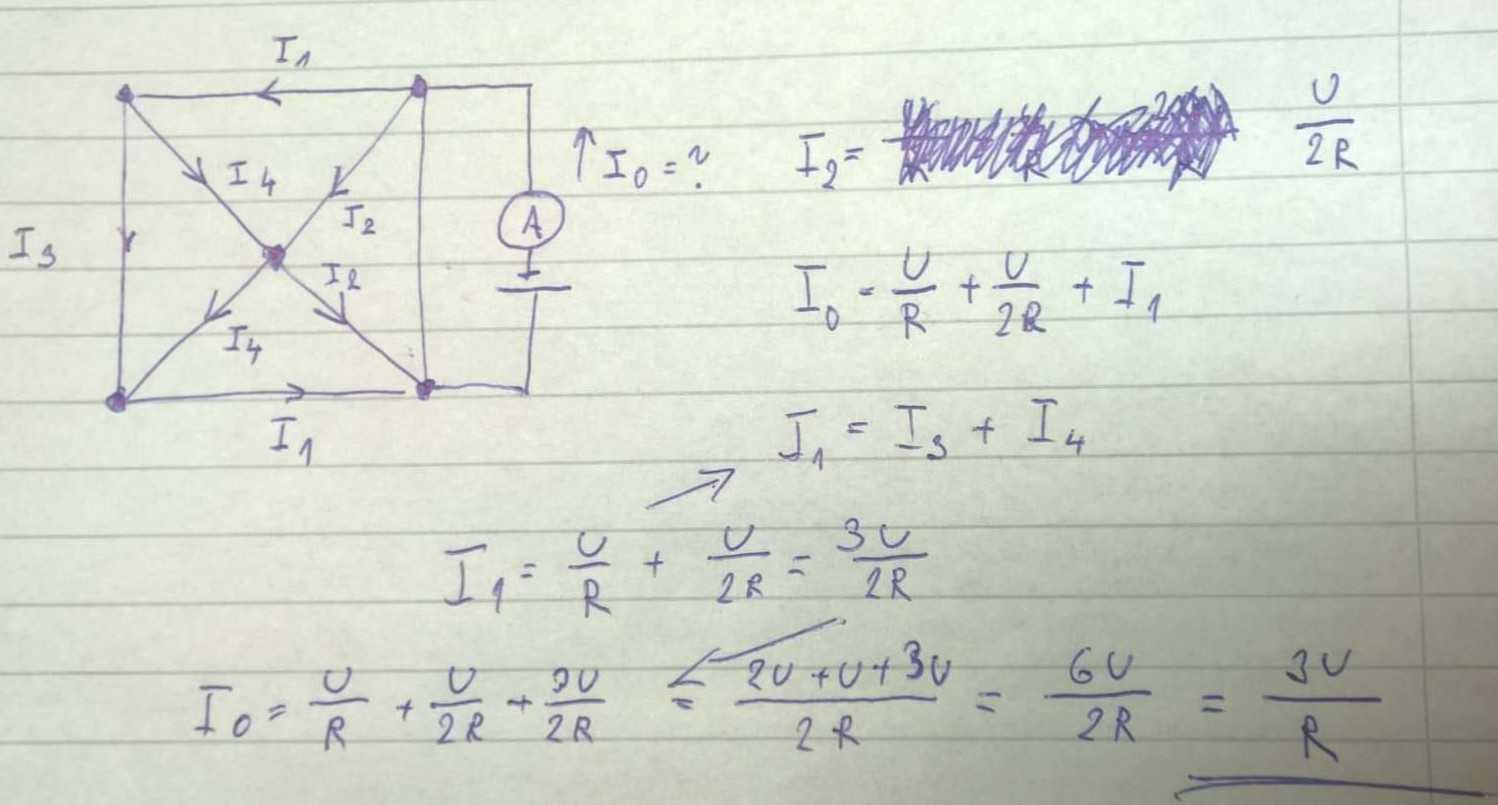 I₁
I₄
I₂
I₃
I₂
I₄
I₁
A
↑ I₀ = ?
I₂ = U/2R
I₀ = U/R + U/2R + I₁
I₁ = I₃ + I₄
I₁ = U/R + U/2R = 3U/2R
I₀ = U/R + U/2R + 3U/2R = 2U + U + 3U/2R = 6U/2R = 3U/R